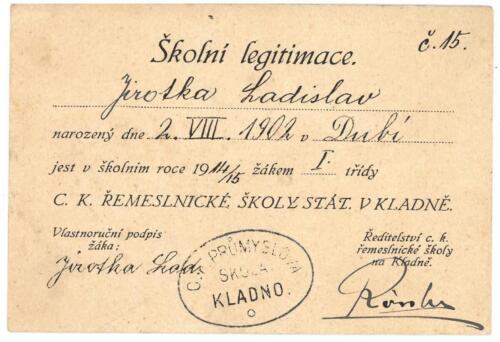 č. 15.
Školní legitimace.
Jirotka Ladislav
narozený dne 2. VIII. 1902 v Dubí
jest v školním roce 1914/15 žákem I. třídy
C. K. ŘEMESLNICKÉ ŠKOLY STÁT. V KLADNĚ.
Vlastnoruční podpis
žáka:
Jirotka Lad.
PRŮMYSLOVÁ
ŠKOLA
KLADNO.
Ředitelství c. k.
řemeslnické školy
na Kladně.